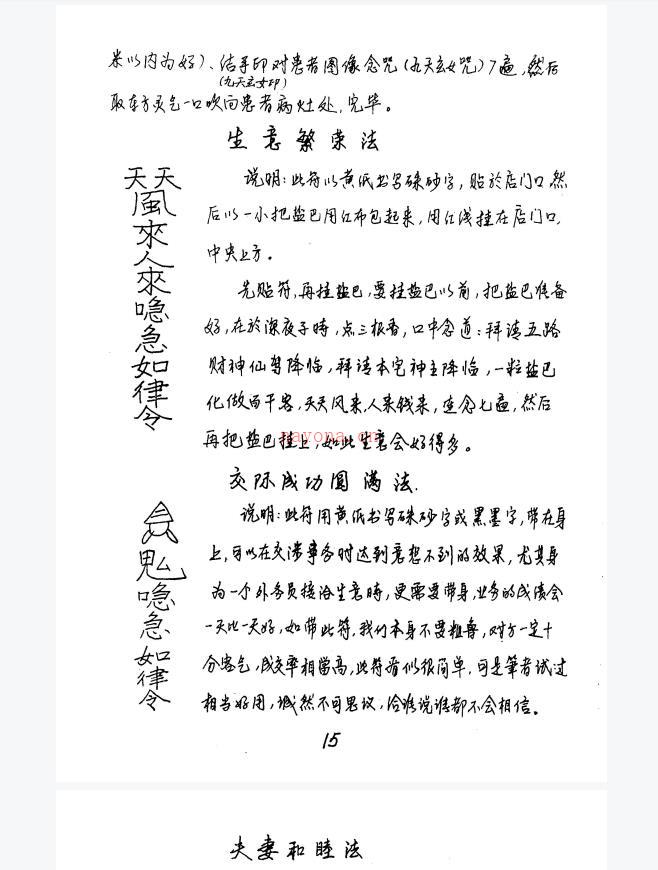 米以内为好)、结手印对患者图像念咒(九天玄女咒)7遍,然后
(九天玄女印)
取东方灵气一口吹向患者病灶处,完毕。
生意繁荣法
天天風來人來喼急如律令
说明:此符以黄纸书写硃砂字,贴於店门口,然
后以一小把盐巴用红布包起来,用红浅挂在店门口,
中央上方。
先贴符,再挂盐巴,要挂盐巴以前,把盐巴准备
好,在於深夜子時,点三根香,口中念道:拜请五路
财神仙驾降临,拜请本宅神主降临,一粒盐巴
化做百千客,天天风来,人来钱来,连念七遍,然后
再把盐巴挂上,如此生意会好得多。
nayona.cn
交际成功圆满法.
鬼喼急如律令
说明:此符用黄纸书写硃砂字或黑墨字,带在身
上,可以在交涉事务时达到意想不到的效果,尤其身
为一个外务员接洽生意時,更需要带身,业务的成绩会
一天比一天好,如带此符,我们本身不要粗鲁,对方一定十
分客气,成交率相當高,此符看似很简单,可是筆者试过
相当好用,诚然不可思议,洽谁说谁都不会相信。
15
夫妻和睦法